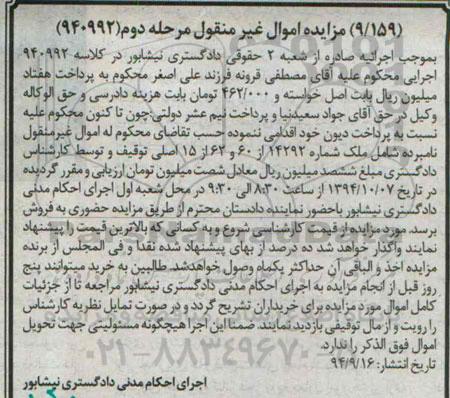 (۹/۱۵۹) مزایده اموال غیر منقول مرحله دوم(۹۴۰۹۹۲)
بموجب اجرائیه صادره از شعبه ۲ حقوقی دادگستری نیشابور در کلاسه ۹۴۰۹۹۲
اجرایی محکوم علیه آقای مصطفی قرونه فرزند علی اصغر محکوم به پرداخت هفتاد
میلیون ریال بابت اصل خواسته و ۴۶۲/۰۰۰ تومان بابت هزینه دادرسی و حق الوکاله
وکیل در حق آقای جواد سعیدنیا و پرداخت نیم عشر دولتی:چون تا کنون محکوم علیه
نسبت به پرداخت دیون خود اقدامی ننموده حسب تقاضای محکوم له اموال غیرمنقول
نامبرده شامل ملک شماره ۱۴۲۹۲ از ۶۰ و ۶۳ از ۱۵ اصلی توقیف و توسط کارشناس
دادگستری مبلغ ششصد میلیون ریال معادل شصت میلیون تومان ارزیابی و مقرر گردیده
در تاریخ ۱۳۹۴/۱۰/۰۷ از ساعت ۸:۳۰ الی ۹:۳۰ در محل شعبه اول اجرای احکام مدنی
دادگستری نیشابور باحضور نماینده دادستان محترم از طریق مزایده حضوری به فروش
برسد. مورد مزایده از قیمت کارشناسی شروع و به کسانی که بالاترین قیمت را پیشنهاد
نمایند واگذار خواهد شد ده درصد از بهای پیشنهاد شده نقدا و فی المجلس از برنده
مزایده اخذ و الباقی آن حداکثر یکماه وصول خواهدشد. طالبین به خرید میتوانند پنج
روز قبل از انجام مزایده به اجرای احکام مدنی دادگستری نیشابور مراجعه تا از جزئیات
کامل اموال مورد مزایده برای خریداران تشریح گردد و در صورت تمایل نظر به کارشناس
را رویت و از مال توقیفی بازدید نمایند. ضمنا این اجرا هیچگونه مسئولیتی جهت تحویل
اموال فوق الذکر را ندارد.
تاریخ انتشار: ۹۴/۹/۱۶
اجرای احکام مدنی دادگستری نیشابور
۰۲۱-۸۸۳۴۹۶۷۰